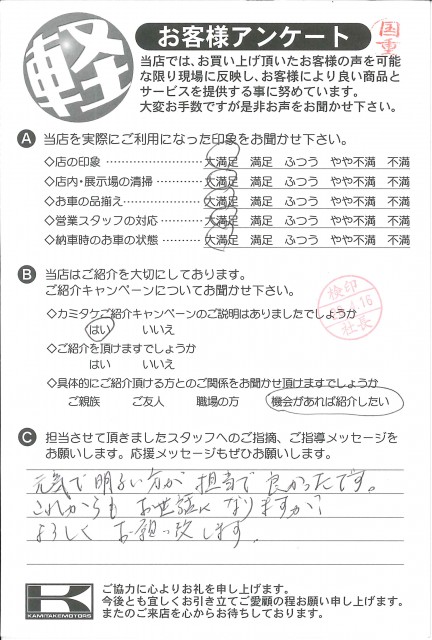 軽
お客様アンケート
国重
当店では、お買い上げ頂いたお客様の声を可能
な限り現場に反映し、お客様により良い商品と
サービスを提供する事に努めています。
大変お手数ですが是非お声をお聞かせ下さい。
A 当店を実際にご利用になった印象をお聞かせ下さい。
◇店の印象 …………………… 大満足 満足 ふつう やや不満 不満
◇店内・展示場の清掃 ………… 大満足 満足 ふつう やや不満 不満
◇お車の品揃え ………………… 大満足 満足 ふつう やや不満 不満
◇営業スタッフの対応 ………… 大満足 満足 ふつう やや不満 不満
◇納車時のお車の状態 ………… 大満足 満足 ふつう やや不満 不満
B 当店はご紹介を大切にしております。
ご紹介キャンペーンについてお聞かせ下さい。
検印
4.16
社長
◇カミタケご紹介キャンペーンのご説明はありましたでしょうか
はい いいえ
◇ご紹介を頂けますでしょうか
はい いいえ
◇具体的にご紹介頂ける方とのご関係をお聞かせ頂けますでしょうか
ご親族 ご友人 職場の方 機会があれば紹介したい
C 担当させて頂きましたスタッフへのご指摘、ご指導メッセージを
お願いします。応援メッセージもぜひお願いします。
元気で明るい方が担当で良かったです。
これからもお世話になりますが
よろしくお願い致します。
K
KAMITAKEMOTORS
ご協力に心よりお礼を申し上げます。
今後とも宜しくお引き立てご愛顧の程お願い申し上げます。
またのご来店を心からお待ちしております。